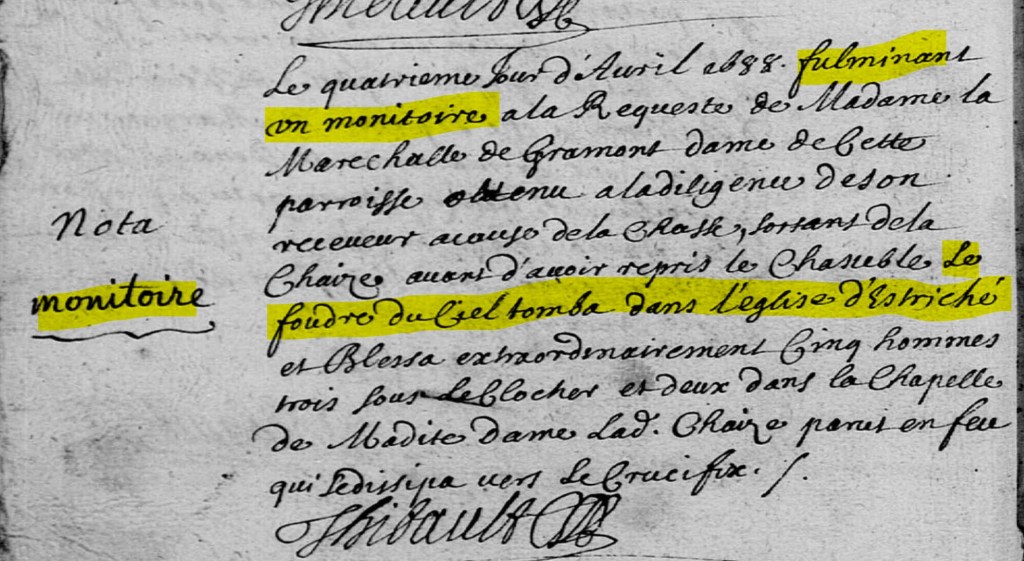 Thibault
Le quatrieme Jour d'Auril 1688. fulminant
vn monitoire a la Requeste de Madame la
Marechalle de Gramont dame de Cette
parroisse obtenu a la diligence de son
receueur a cause de la Chasse, sortant de la
Chaize auant d'auoir repris le Chasuble Le
foudre du Ciel tomba dans l'eglise d'Estriché
et Blessa extraordinairement Cinq hommes
trois sous Le Clocher et deux dans la Chapelle
de Madite dame Lad. Chaize parut en feu
qui se dissipa uers Le Crucifix.
Thibault
Nota
monitoire